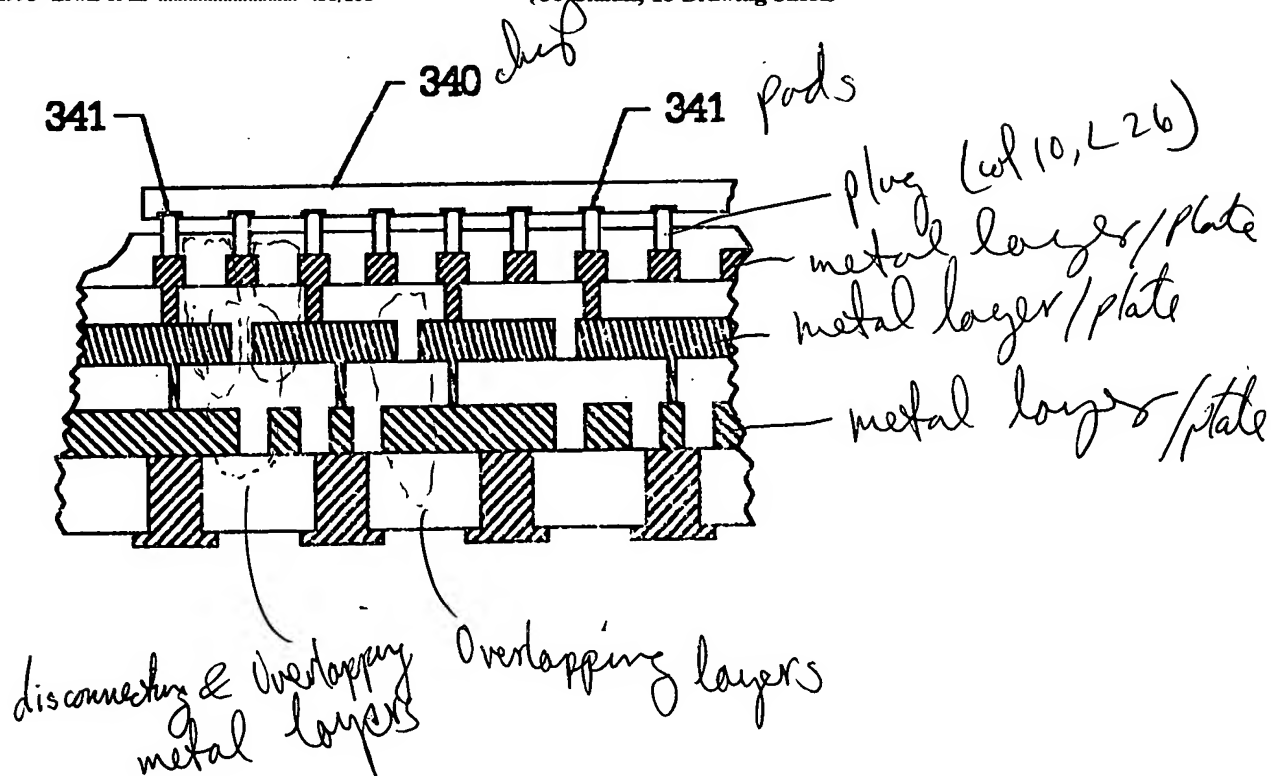 340 chip
341
341 pads
plug (col 10, L26)
metal layer/plate
metal layer/plate
metal layer/plate
disconnecting & Overlapping
metal layers
Overlapping layers